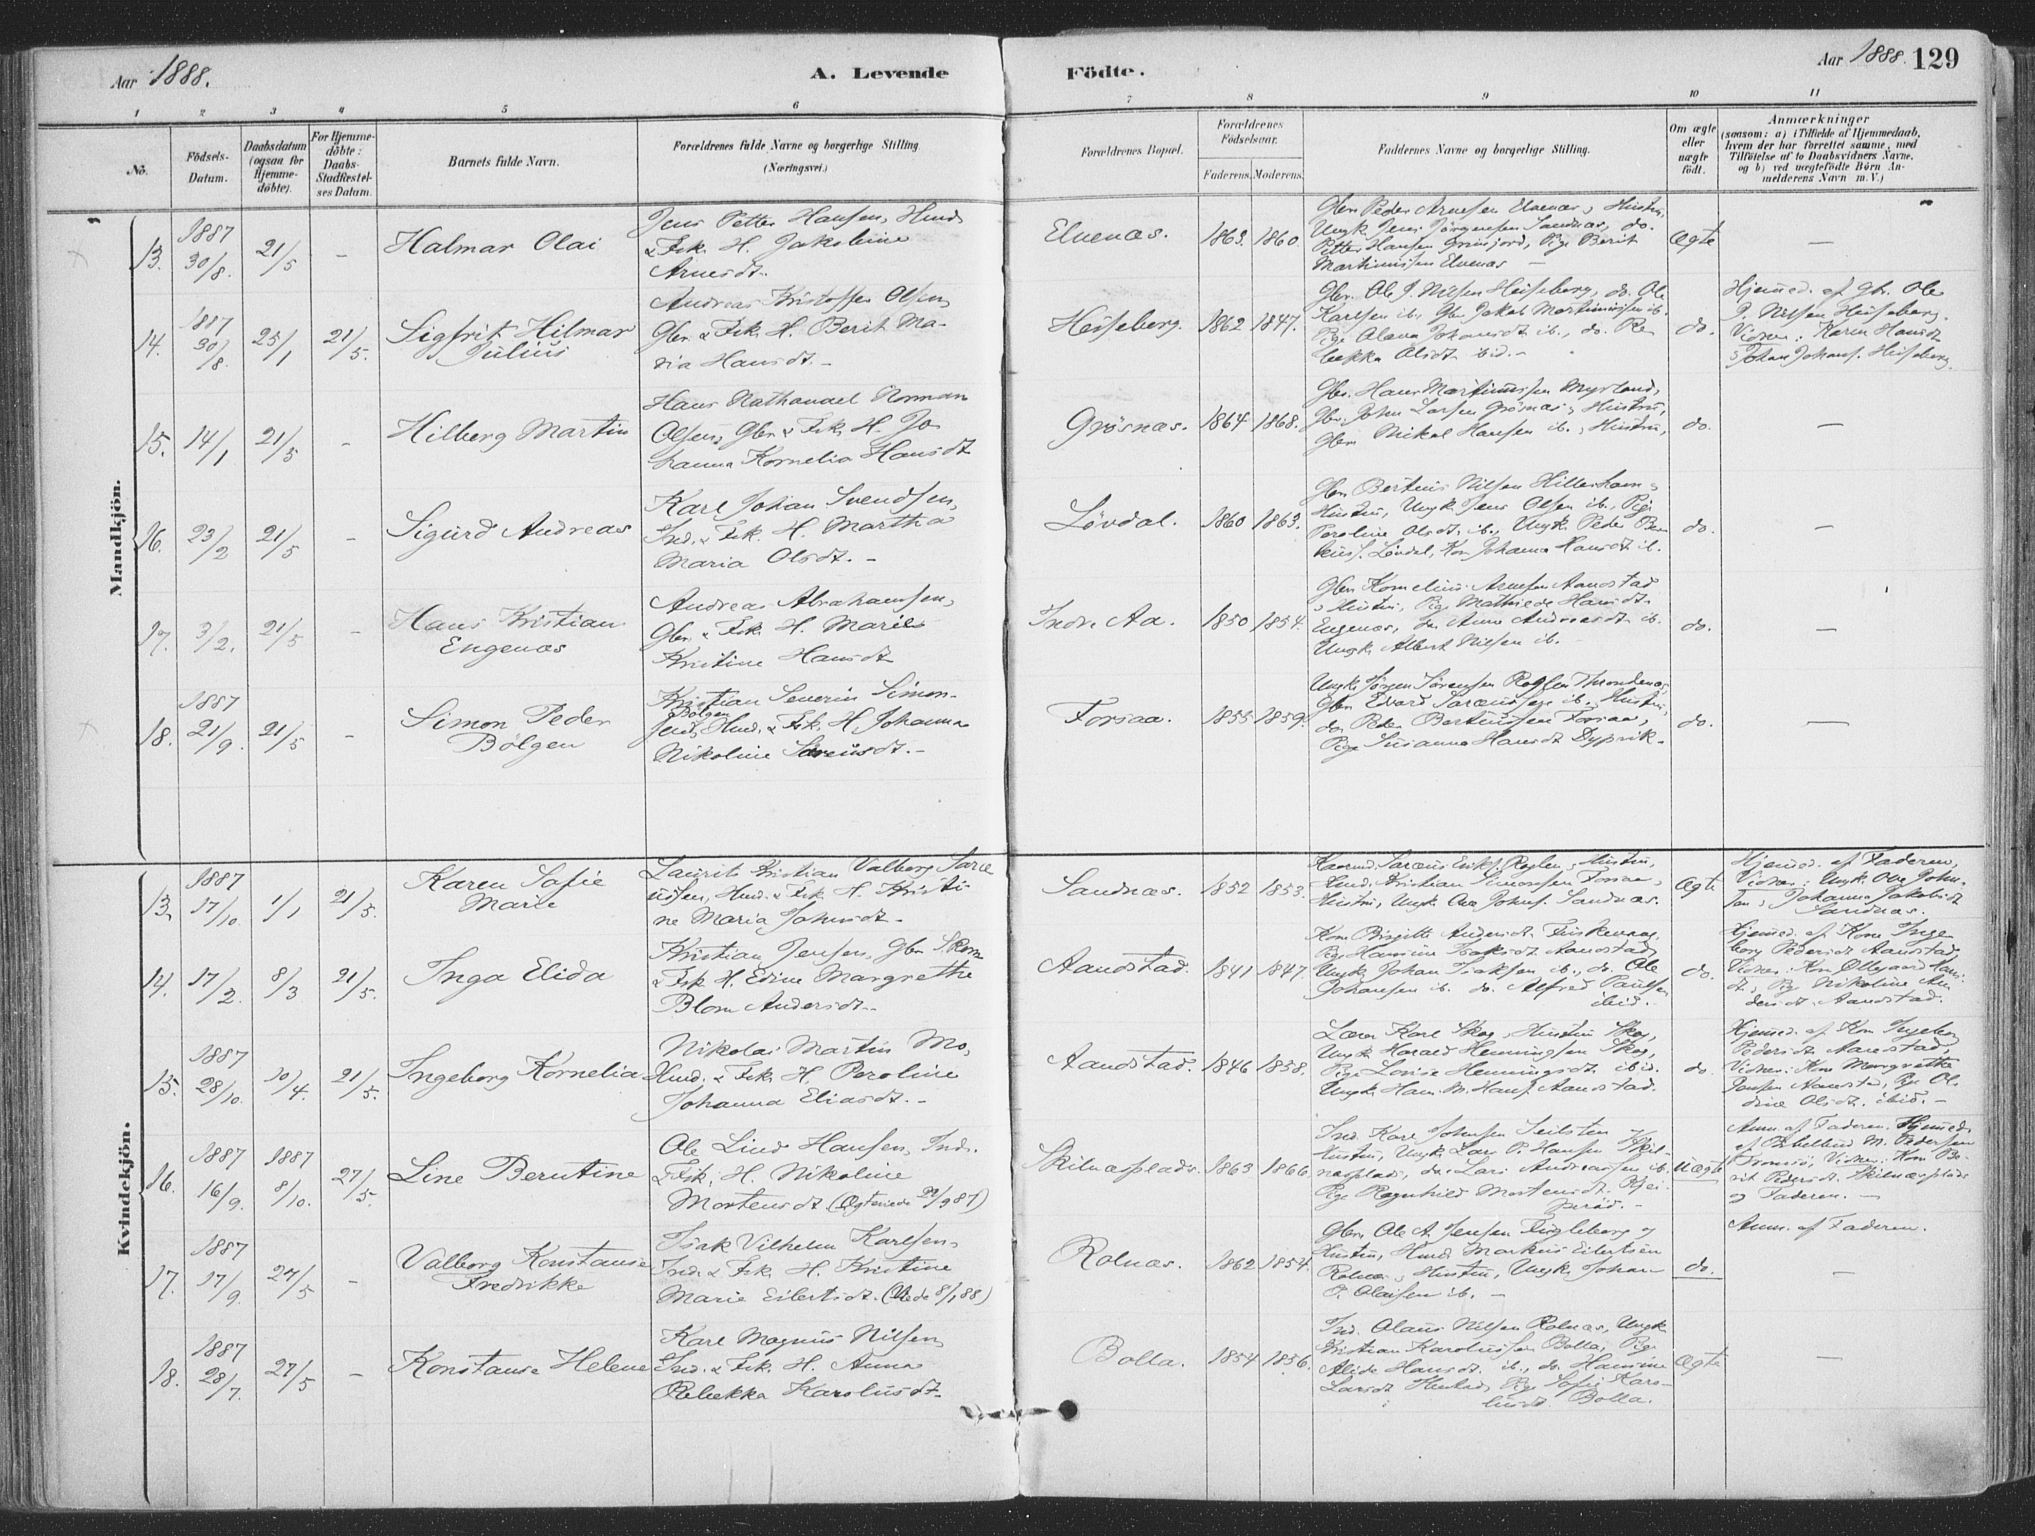 Aar 1888.
A. Levende
Fødte.
Aar 1888. 129
1 2 3 4 5 6 7 8 9 10 11
No.
Födsels-
Datum.
Daabsdatum
(ogsaa for
Hjemme-
döbte).
For Hjemme-
döbte:
Daabs-
Stadfæstel-
ses Datum.
Barnets fulde Navn.
Forældrenes fulde Navne og borgerlige Stilling
(Næringsvei.)
Forældrenes Bopæl.
Forældrenes
Födselsaar.
Faderens. Moderens.
Faddernes Navne og borgerlige Stilling.
Om ægte
eller
uægte
födt.
Anmærkninger
(saasom: a) i Tilfælde af Hjemmedaab,
hvem der har forrettet samme, med
Tilföielse af to Daabsvidners Navne,
og b) ved uægtefödte Börn An-
melderens Navn m. V.)
Mandkjön.
13. 1887 30/8. 21/5 - Halmar Olai
Jens Petter Hansen, Huusm
& Fisk. H. Jakobine
Arnesdt.
Elvenæs. 1863. 1860.
Gbr. Peder Arnesen Elvenæs, Hustru,
Ungk. Jens Jörgensen Sandnæs, do.
Petter Hansen Grunfjord, Pige Berit
Martinussen Elvenæs -
Ægte -
14. 1887 30/8 25/1 21/5. Sigfrit Hilmar
Julius
Andreas Kristoffer Olsen,
Gbr. & Fisk. H. Berit Ma-
ria Hansdt. -
Heiseberg. 1862 1847.
Gbr. Ole J. Nilsen Heiseberg, do. Ole
Karlsen ib., Gbr. Jakob Martinussen ib.
Pige Olava Johansdt ib., do. Re
bekka Olsdt ibid. -
do.
Hjemmed. af Gb. Ole
J. Nilsen Heiseberg.
Vidner: Karen Hansdt
& Johan Johans. Heiseberg.
15. 14/1 21/5 - Hilberg Martin
Hans Nathanael Norman
Olsen, Gbr. & Fisk. H. Jo
hanna Kornelia Hansdt
Grøsnæs. 1864 1868.
Gbr. Hans Martinussen Myrland,
Gbr. John Larsen Grøsnæs, Hustru,
Gbr. Mikal Hansen ib., Hustru,
do. -
16. 23/2 21/5 - Sigurd Andreas
Karl Johan Svendsen,
Ind. & Fisk. H. Martha
Maria Olsdt. -
Lövdal. 1860 1863.
Gbr. Bertinus Nilsen Hilleshamn
Hustru, Ungk. Jens Olsen ib., Pige
Peroline Olsdt. ib., Ungk. Peder Ber
teus. Lövdal, Kon Johanna Hansdt ib.
do. -
17. 3/2. 21/5 - Hans Kristian
Engenæs
Andreas Abrahamsen,
Gbr. & Fisk. H. Marie
Kristine Hansdt
Indre Aa. 1850 1854.
Gbr. Kornelius Arnesen Aandstad
& Hustru, Pige Mathilde Hansdt
Engenæs, do. Anna Andreasdt ib.
Ungk. Albert Nilsen ib.
do. -
18. 1887 21/9. 21/5 - Simon Peder
Bölgen
Kristian Severin Simon-
Bölgen
sen, Huusm. & Fisk. H. Johanna
Nikoline Sareusdt. -
Forsaa. 1855 1859.
Ungk. Jörgen Sörensen Rogla Throndenæs,
Gbr. Edvard Saræussen ib., Hustru,
do. Peder Bertheussen Forsaa,
Pige Susanna Hansdt Dypvik -
do. -
Kvindekjön.
13. 1887 17/10. 1/1 21/5. Karen Sofie
Marie
Laurits Kristian Valberg Saræ
usen, Huusm. & Fisk. H. Kristi-
ne Maria Johnsdt. -
Sandnæs. 1852 1853.
Kaarmd. Saræus Eriks. Roglen, Hustru,
Huusm. Kristian Simonsen Forsaa,
Hustru, Ungk. Ova Johns. Sandnæs.
Ægte
Hjemmed. af Faderen,
Vidner: Ungk. Ove John-
sen, Johanna Jakobsdt
Sandnæs.
14. 17/2. 8/3 21/5. Inga Elida
Kristian Jensen, Gbr. Skom.
& Fisk. H. Edine Margrethe
Blom Andersdt. -
Aandstad. 1841 1847.
Kone Birgitte Andersdt. Finskenæs,
Pige Hansine Isaksdt Aandstad,
Ungk. Johan Isaksen ib., do. Ole
Johansen ib. do. Alfred Paulsen
ibid. -
do.
Hjemmed. af Kone Inge
borg Pedersdt Aandstad
Vidner: Kon Ollegaard Hans
dt., Pige Nikoline An
dersdt. Aandstad.
15. 1887 28/10. 10/4. 21/5. Ingeborg Kornelia
Nikolai Martin Mo,
Huusm. & Fisk. H. Peroline
Johanna Eliasdt. -
Aandstad. 1846 1858.
Lærer Karl Skog, Hustru Skog,
Ungk. Harald Henningsen Skog,
Pige Lovise Henningsdt ibid.
Ungk. Hans M. Hans. Aandstad.
do.
Hjemmed. af Kon Ingeborg
Pedersdt Aandstad,
Vidner: Kon Margrethe
Jonsen Aandstad, Pige Ol.
dine Olsdt. ibid. -
16. 1887 16/9. 1887 8/10. 27/5. Line Berntine
Ole Lind Hansen, Ind.
& Fisk. H. Nikoline
Mortensdt (Ægteviede 29/9 87)
Skilnæsplads. 1863 1866.
Ind. Karl Johnsen Leiksten
Hustru, Ungk. Lars P. Hansen Skil-
næsplads, do. Lars Andreassen ib.
Pige Ragnhild Mortensdt.
Uægte
Anm. af Faderen. Hjemmed.
af M. Pedersen
Tromsö, Vidner: Kon Be-
rit Pedersdt. Skilnæsplads
og Faderen. -
17. 1887 17/9. 27/5 - Valborg Konstanse
Fredrikke
Isak Vilhelm Karlsen,
Ind. & Fisk. H. Kristine
Marie Eilertsdt. (Viede 8/1 88)
Rolnæs. 1862 1854.
Gbr. Ole A. Jensen Fugleberg og
Hustru, Huusm. Markus Eilertsen
Rolnæs, Hustru, Ungk. Johan
O. Olaisen ib. -
do.
Anm. af Faderen.
-
18. 1887 28/7. 27/5 - Konstanse Helene
Karl Magnus Nilsen,
Ind. & Fisk. H. Anna
Rebekka Karolusdt.
Bolla. 1854 1856.
Ind. Olaus Nilsen Rolnæs, Ungk.
Kristian Karolussen Bolla, Pige
Alida Hansdt. ib., do. Hansine
Larsdt Pige Sofie Karo-
lusdt. Bolla.
Ægte -